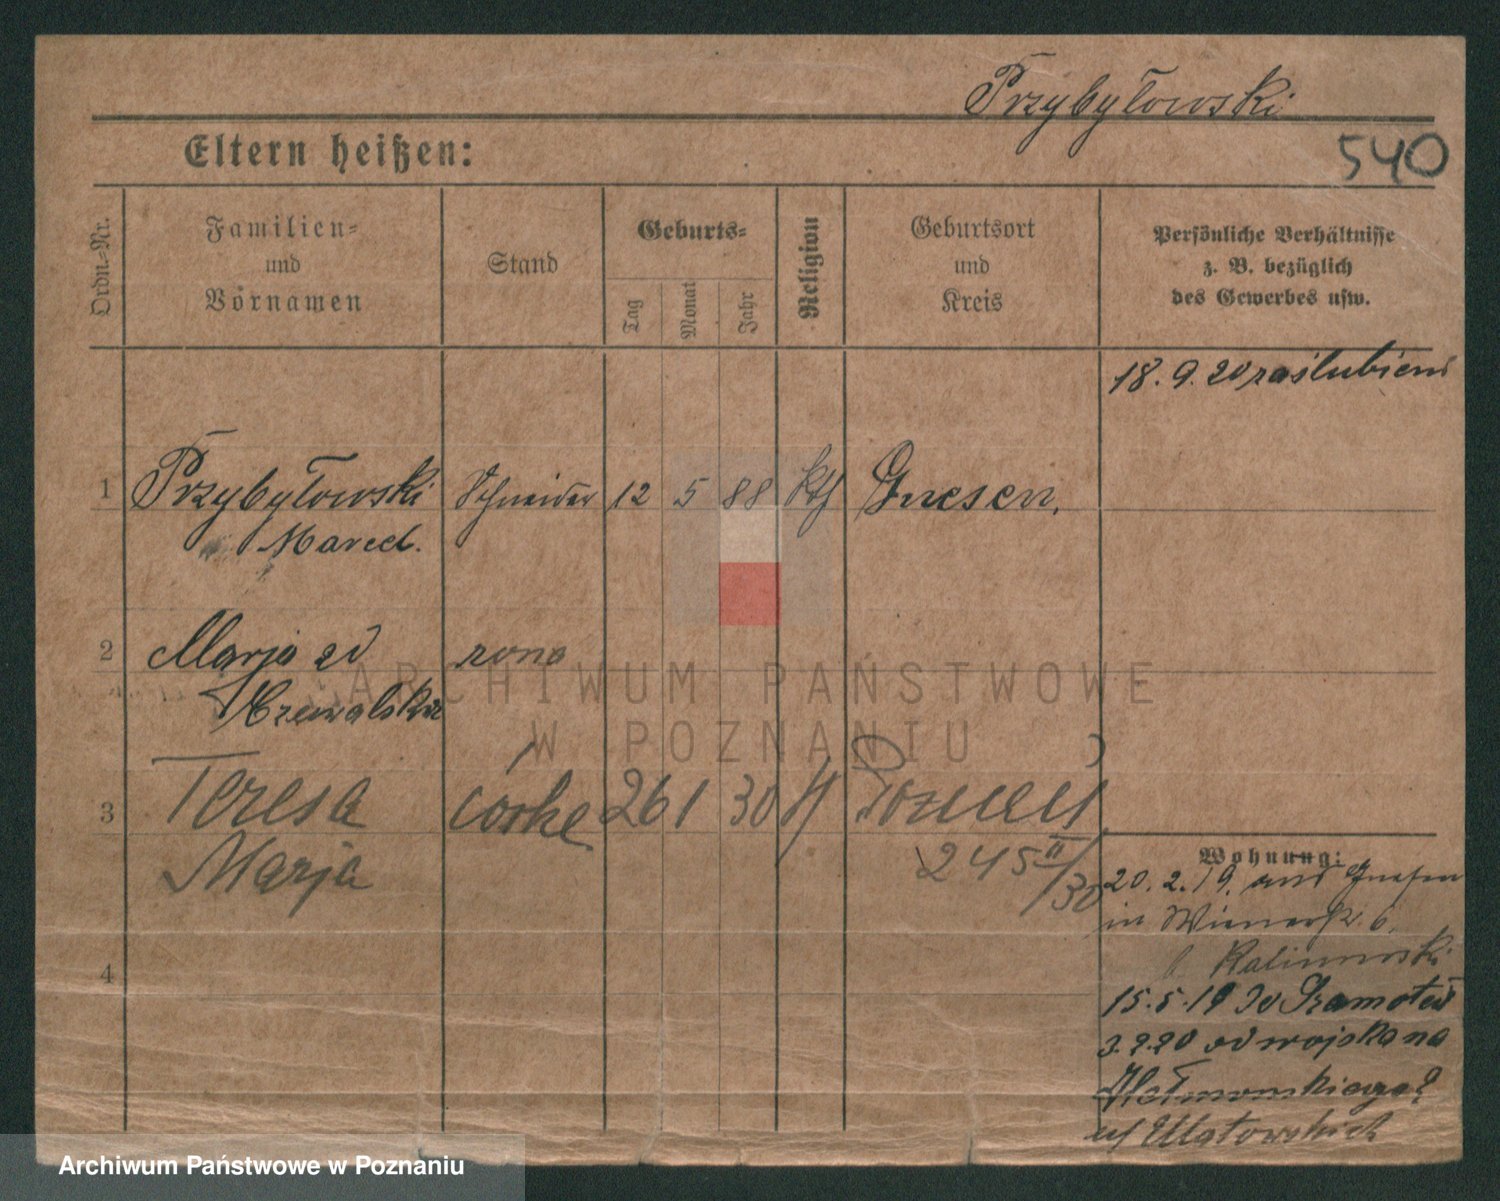 Przybyłowski
540
Eltern heißen:
Ordn.-Nr.
Familien-
und
Vornamen
Stand
Geburts-
Tag
Monat
Jahr
Religion
Geburtsort
und
Kreis
Persönliche Verhältnisse
z. B. bezüglich
des Gewerbes usw.
18. 9. 20 zaślubieni
1 Przybyłowski Schneider 12 5 88 kth Gnesen.
Marcel.
2 Marja zd żona
3 Teresa córka 26 1 30 Poznań
Marja
245 II/30
4
Wohnung:
20. 2. 19. aus Gnesen
in Wienerstr. 6.
Kalinowski
15. 5. 19 do
3. 2. 20 od wojska na
ARCHIWUM PAŃSTWOWE
W POZNANIU
Archiwum Państwowe w Poznaniu